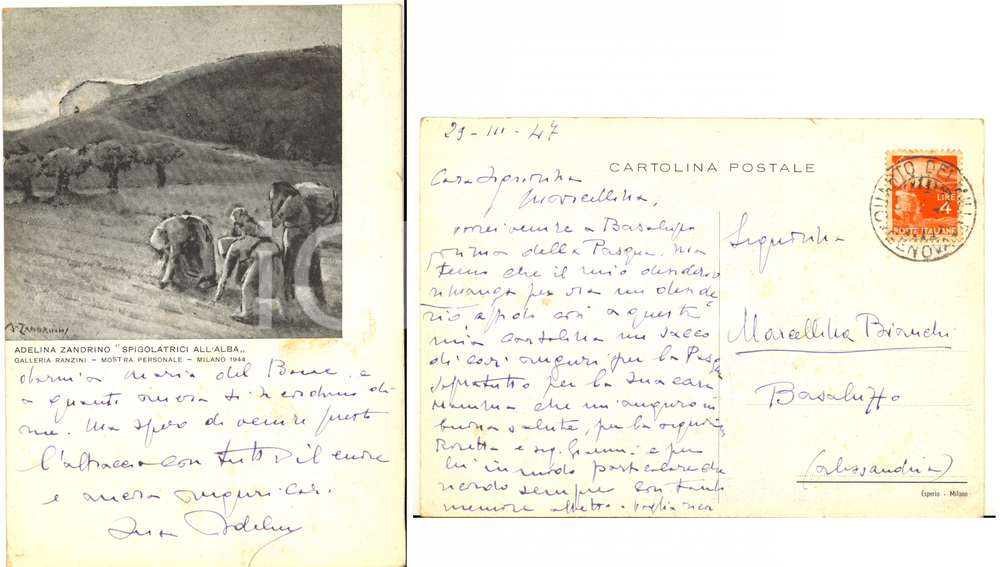 A. ZANDRINO
ADELINA ZANDRINO "SPIGOLATRICI ALL'ALBA„
GALLERIA RANZINI – MOSTRA PERSONALE – MILANO 1944
Maria del Bene e
a quanti ancora si ricordano di
me. Ma spero di venire presto
l'abbraccio con tutto il cuore
e ancora auguri cari.
Sua Adelina
29-III-47
CARTOLINA POSTALE
Cara Signorina
Marcellina,
vorrei venire a Basaluzzo
prima della Pasqua, ma
temo che il mio desiderio
rimanga per ora un deside
rio affido così a questa
mia cartolina un sacco
di cari auguri per la Pasqua
soprattutto per la sua cara
mamma che m'auguro in
buona salute, per la signorina
Rosetta e sig. Gianni e per
lei in modo particolare che
ricordo sempre con tanto
memore affetto. Voglia ricor
LIRE
4
POSTE ITALIANE
GENOVA
Signorina
Marcellina Bianchi
Basaluzzo
(Alessandria)
Esperia - Milano